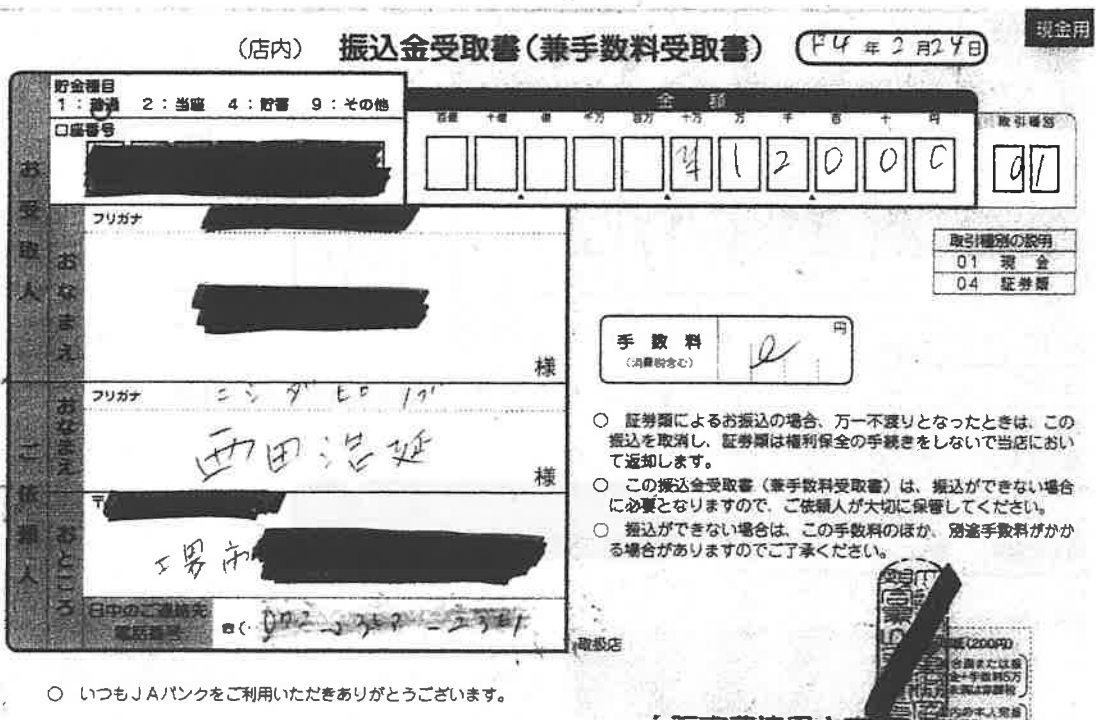 現金用
(店内) 振込金受取書(兼手数料受取書) 4年2月24日
貯金種目
1:普通 2:当座 4:貯蓄 9:その他
口座番号
金額
百億 十億 億 千万 百万 十万 万 千 百 十 円
¥ 1 2 0 0 0
取引種別
01
お受取人
おなまえ
フリガナ
様
取引種別の説明
01 現金
04 証券類
手数料
(消費税含む)
円
ご依頼人
おなまえ
フリガナ ニシダヒロノブ
西田浩延
様
おところ
〒
市
日中のご連絡先
電話番号
取扱店
○ 証券類によるお振込の場合、万一不渡りとなったときは、この
振込を取消し、証券類は権利保全の手続きをしないで当店におい
て返却します。
○ この振込金受取書(兼手数料受取書)は、振込ができない場合
に必要となりますので、ご依頼人が大切に保管してください。
○ 振込ができない場合は、この手数料のほか、別途手数料がかか
る場合がありますのでご了承ください。
(200円)
○ いつもJAバンクをご利用いただきありがとうございます。